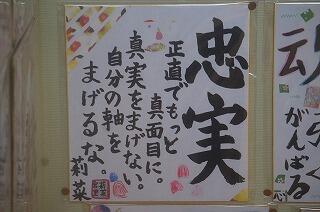 忠実
正直でもっと
真面目に。
真実をまげない。
自分の軸を
まげるな。
莉菜
がんばる